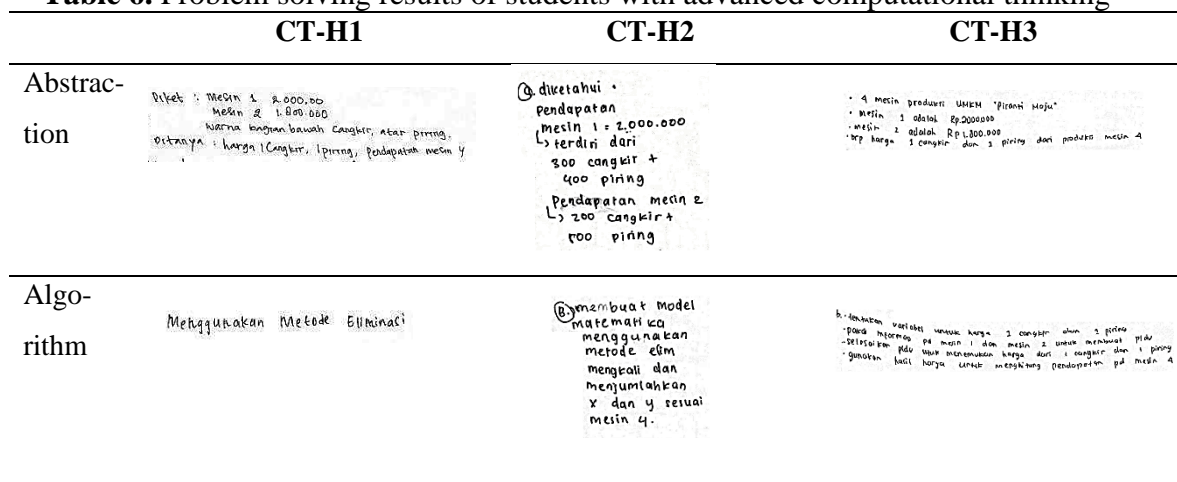 Table 6. Problem solving results of students with advanced computational thinking
CT-H1 CT-H2 CT-H3
Abstrac-
tion
Diket : Mesin 1 2.000,00
Mesin 2 1.800.000
Warna bagian bawah Cangkir, atas piring.
Ditanya : harga 1 Cangkir, 1 piring, Pendapatan mesin 4
a. diketahui :
Pendapatan
mesin 1 = 2.000.000
↳ terdiri dari
300 cangkir +
400 piring
Pendapatan mesin 2
↳ 200 cangkir +
500 piring
• 4 mesin produksi UMKM "Piranti Maju"
• mesin 1 adalah Rp.2000000
• mesin 2 adalah Rp1.800.000
• brp harga 1 cangkir dan 1 piring dari produksi mesin 4
Algo-
rithm
Menggunakan Metode Eliminasi
B. membuat model
matematika
menggunakan
metode elim
mengkali dan
menjumlahkan
x dan y sesuai
mesin 4.
b. -tentukan variabel untuk harga 1 cangkir dan 1 piring
- informasi pd mesin 1 dan mesin 2 untuk membuat pldv
-selesaikan pldv utk menemukan harga dari 1 cangkir dan 1 piring
- gunakan hasil harga untuk menghitung pendapatan pd mesin 4